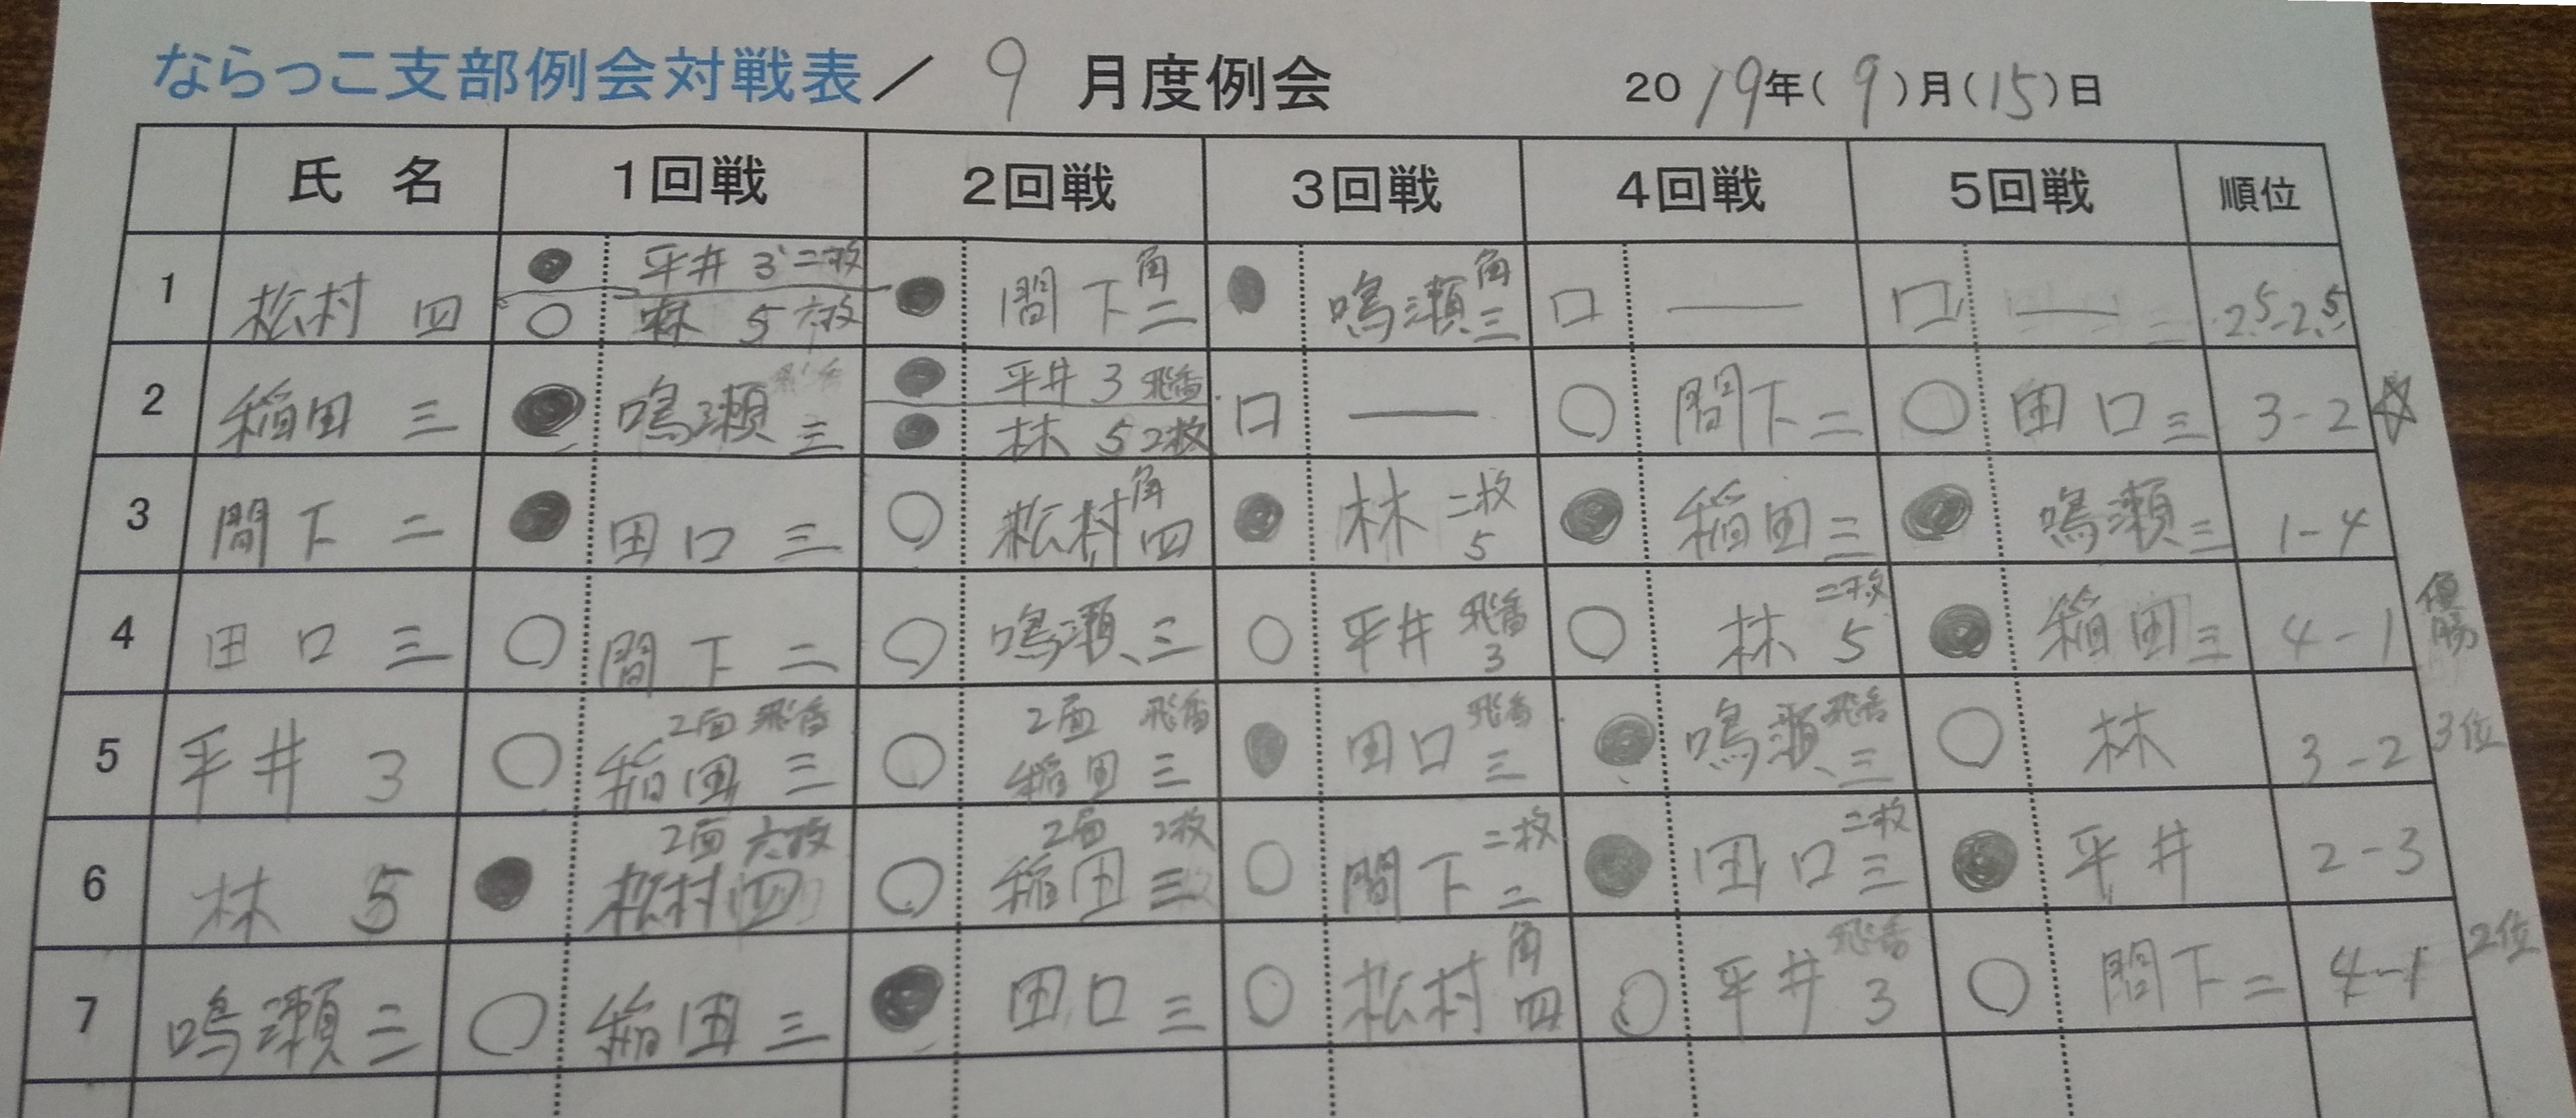 ならっこ支部例会対戦表／ 9 月度例会 2019年(9)月(15)日
氏 名 1回戦 2回戦 3回戦 4回戦 5回戦 順位
1 松村 四 ● 平井 3 二枚 ○ 林 5 六枚 ● 間下 角 二 ● 鳴瀬 角 三 □ — □ — 2.5-2.5
2 稲田 三 ● 鳴瀬 三 ● 平井 3 飛香 ● 林 5 2枚 □ — ○ 間下 二 ○ 田口 三 3-2 ☆
3 間下 二 ● 田口 三 ○ 松村 角 四 ● 林 二枚 5 ● 稲田 三 ● 鳴瀬 三 1-4
4 田口 三 ○ 間下 二 ○ 鳴瀬 三 ○ 平井 飛香 3 ○ 林 二枚 5 ● 稲田 三 4-1 優勝
5 平井 3 ○ 2面 飛香 稲田 三 ○ 2面 飛香 稲田 三 ● 田口 飛香 三 ● 鳴瀬 飛香 三 ○ 林 3-2 3位
6 林 5 ● 2面 六枚 松村 四 ○ 2面 2枚 稲田 三 ○ 間下 二枚 二 ● 田口 二枚 三 ● 平井 2-3
7 鳴瀬 三 ○ 稲田 三 ● 田口 三 ○ 松村 角 四 ○ 平井 飛香 3 ○ 間下 二 4-1 2位